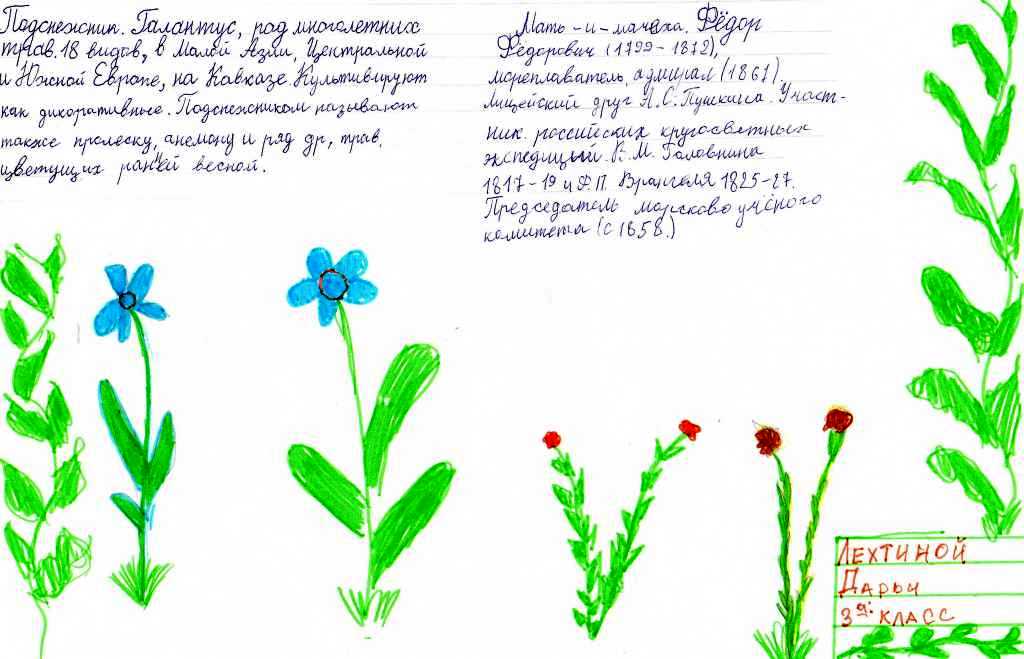 Подснежник. Галантус, род многолетних
трав. 18 видов, в Малой Азии, Центральной
и Южной Европе, на Кавказе. Культивируют
как дикоративные. Подснежником называют
также пролеску, анемону и ряд др, трав.
цветущих ранней весной.
Мать-и-мачеха. Фёдор
Федорович (1799-1872),
мореплаватель, адмирал (1867).
Лицейский друг А.С. Пушкина. Участ-
ник российских кругосветных
экспедицый В.М. Головнина
1817-19 и Ф.П. Врангеля 1825-27.
Председатель морсково учёного
комитета (с 1858.)
Лехтиной
Дарьи
3д: класс